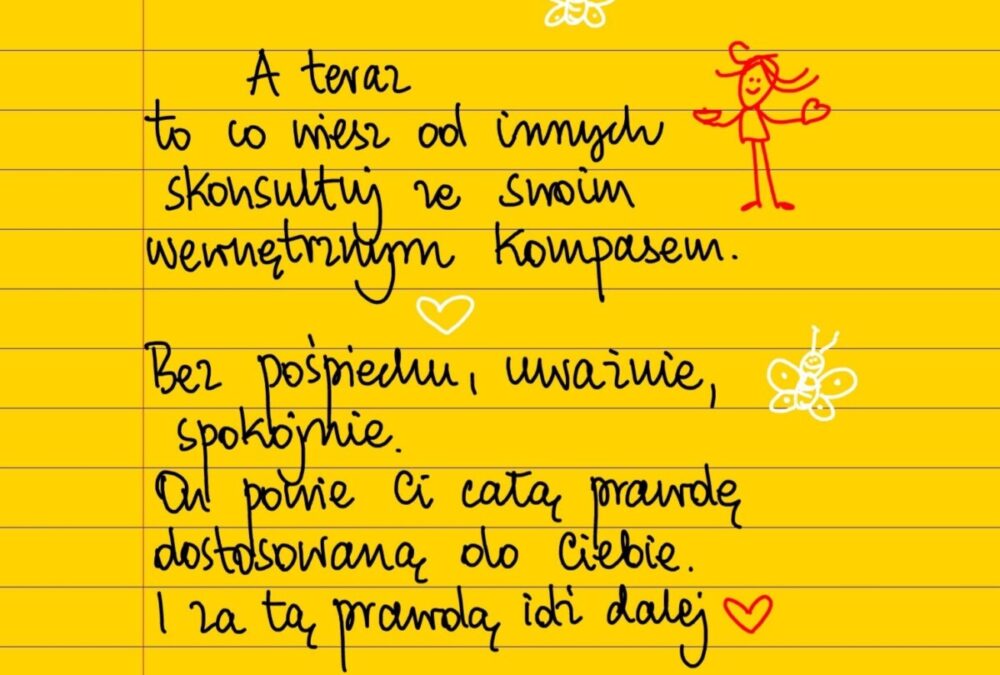 A teraz
to co wiesz od innych
skonsultuj ze swoim
wewnętrznym kompasem.
Bez pośpiechu, uważnie,
spokojnie.
On powie Ci całą prawdę
dostosowaną do Ciebie.
I za tą prawdą idź dalej